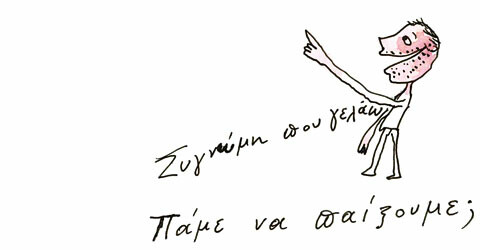 Συγνώμη που γελάω
Πάμε να παίξουμε;